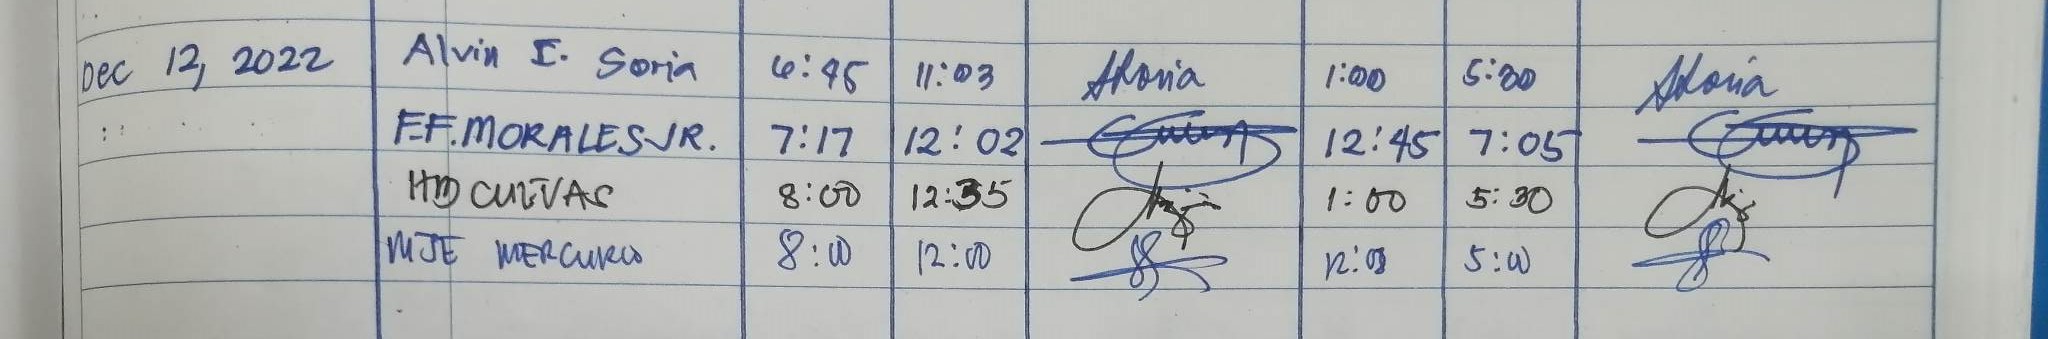 Dec 12, 2022 Alvin I. Soria 6:45 11:03 1:00 5:30
F.F. MORALES JR. 7:17 12:02 12:45 7:05
HD CUEVAS 8:00 12:35 1:00 5:30
MJE MERCURIO 8:00 12:00 5:00